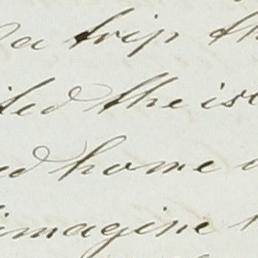 a trip th
ited the isl
ed home a
imagine